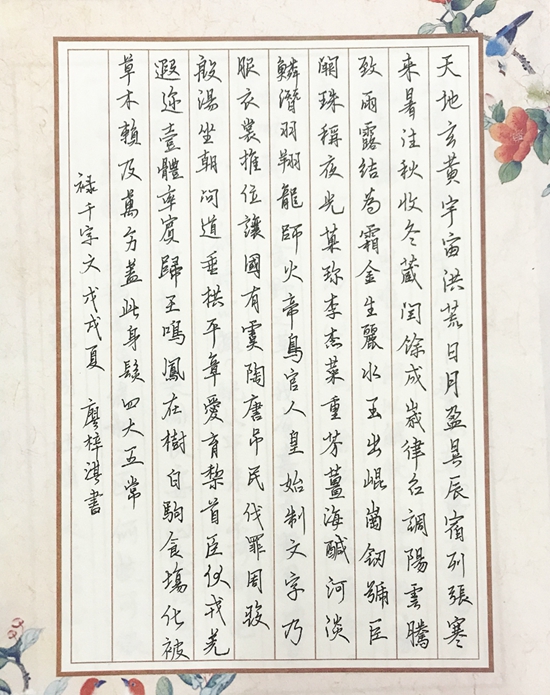 天地玄黃宇宙洪荒日月盈昃辰宿列張寒
来暑往秋收冬蔵閏餘成嵗律召調陽雲騰
致雨露結為霜金生麗水玉出崐崗釼號巨
闕珠稱夜光菓珍李柰菜重芥薑海醎河淡
鱗潛羽翔龍師火帝鳥官人皇始制文字乃
服衣裳推位讓國有虞陶唐吊民伐罪周發
殷湯坐朝問道垂拱平章愛育黎首臣伏戎羌
遐迩壹體率賓歸王鳴鳳在樹白駒食場化被
草木賴及萬方盖此身髮四大五常
禄千字文戊戌夏 廖梓淇書